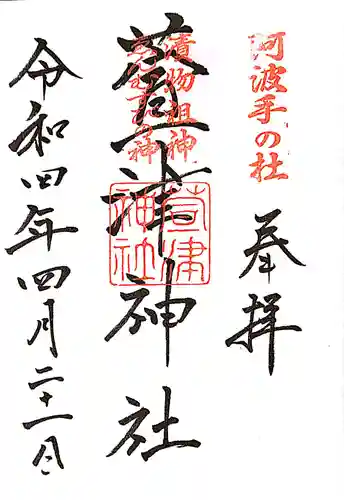 阿波手の杜
奉拝
漬物祖神
むすびの神
萱津神社
萱津
神社
令和四年四月二十一日